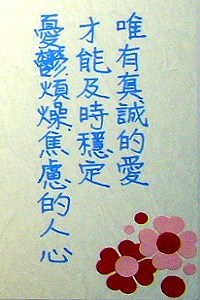 唯有真誠的愛
才能及時穩定
憂鬱煩燥焦慮的人心